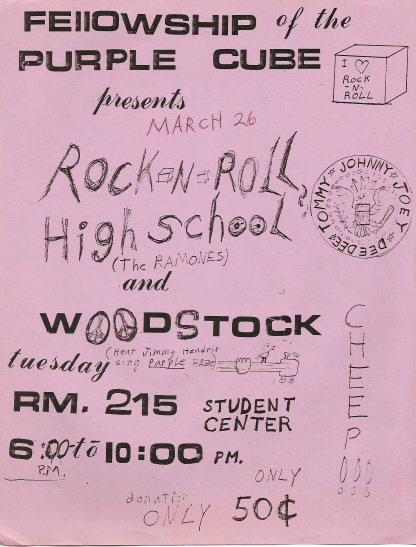 FELLOWSHIP of the
PURPLE CUBE
I ♡
ROCK
-N-
ROLL
presents
MARCH 26
ROCK-N-ROLL
High School
(The RAMONES)
JOHNNY ★ JOEY ★ DEE DEE ★ TOMMY ★
and
WOODSTOCK
tuesday
(Hear Jimmy Hendrix
sing PURPLE HAZE)
CHEEP!!!
RM. 215 STUDENT
CENTER
6:00 to 10:00 PM.
P.M.
ONLY
donation
ONLY 50¢